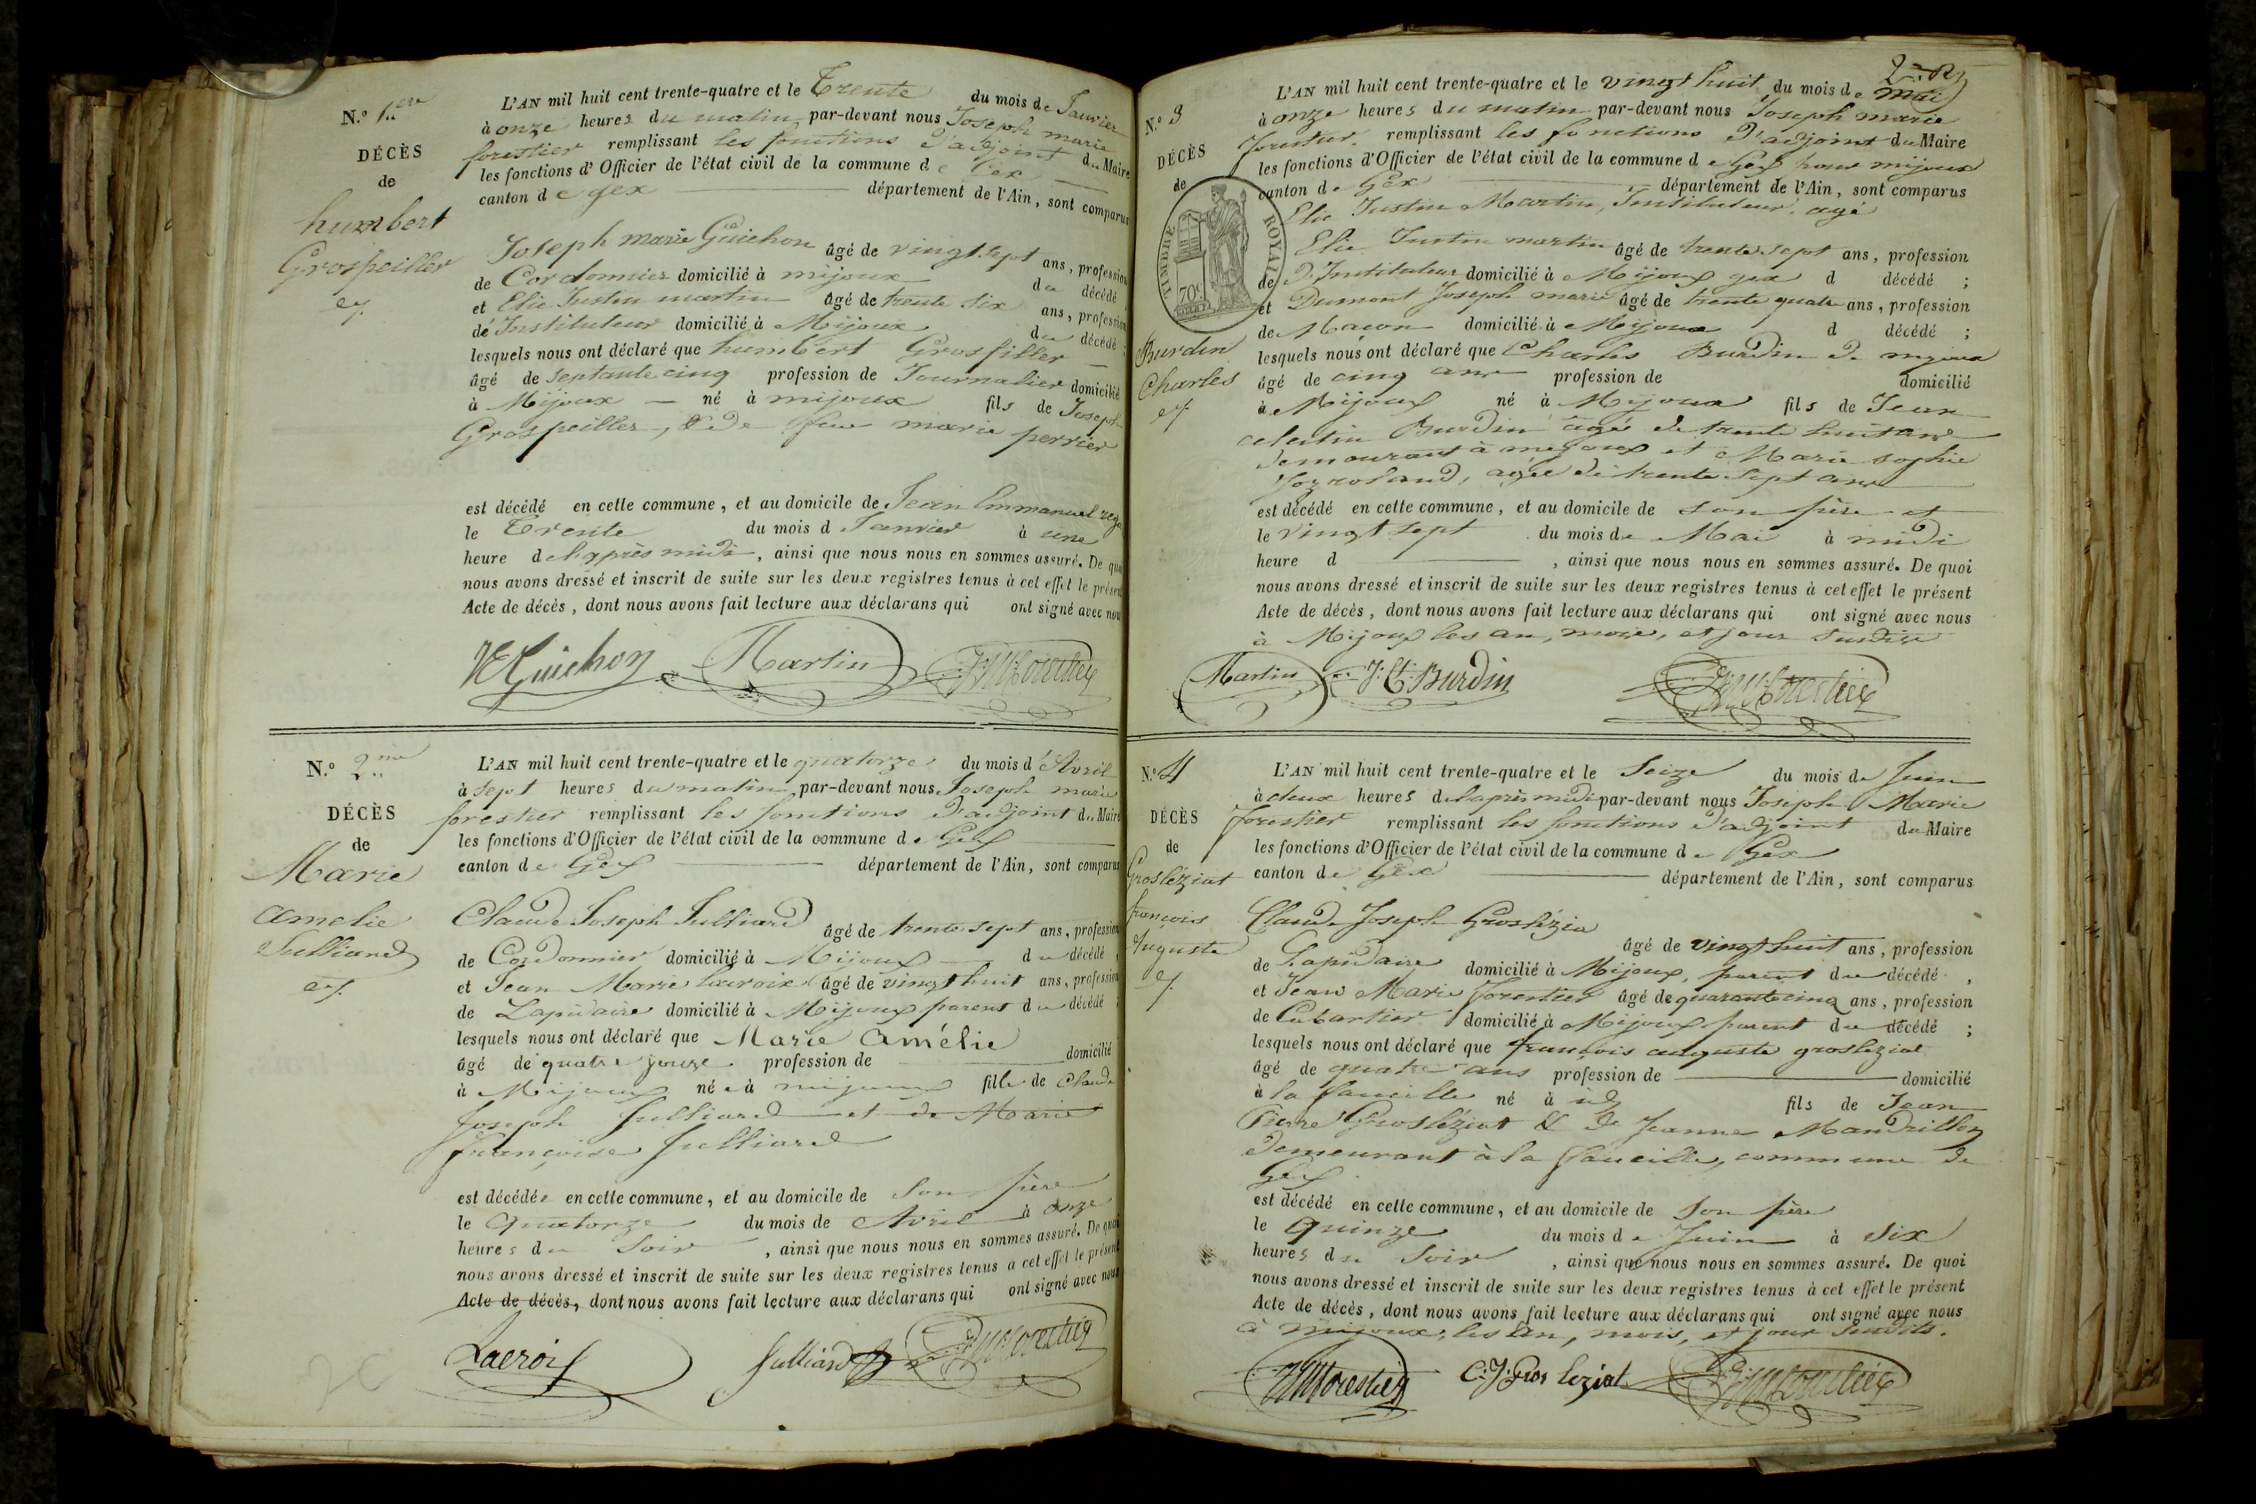 N.º 1.ere
DÉCÈS
de
humbert
Grospeiller
L'AN mil huit cent trente-quatre et le Trente du mois de Janvier
à onze heures du matin par-devant nous Joseph marie
forestier remplissant les fonctions d'adjoint du Maire
les fonctions d'Officier de l'état civil de la commune de Gex
canton de gex département de l'Ain, sont comparus
Joseph marie Guichon âgé de vingt sept ans, profession
de Cordonnier domicilié à mijoux du décédé
et Elie Justin martin âgé de trente six ans, profession
de Instituteur domicilié à Mijoux du décédé ;
lesquels nous ont déclaré que humbert Grosfiller
âgé de septante cinq profession de Journalier domicilié
à Mijoux né à mijoux fils de Joseph
Grospeiller, & de feue marie perrier
est décédé en cette commune, et au domicile de Jean Emmanuel
le Trente du mois d Janvier à une
heure de l'après midi, ainsi que nous nous en sommes assuré. De quoi
nous avons dressé et inscrit de suite sur les deux registres tenus à cet effet le présent
Acte de décès, dont nous avons fait lecture aux déclarans qui ont signé avec nous
Guichon Martin J M Forestier
N.º 2.me
DÉCÈS
de
Marie
Amelie
Julliard
L'AN mil huit cent trente-quatre et le quatorze du mois d'Avril
à sept heures du matin par-devant nous Joseph marie
forestier remplissant les fonctions d'adjoint du Maire
les fonctions d'Officier de l'état civil de la commune de Gex
canton de Gex département de l'Ain, sont comparus
Claude Joseph Julliard âgé de trente sept ans, profession
de Cordonnier domicilié à Mijoux du décédé
et Jean Marie Lacroix âgé de vingt huit ans, profession
de Lapidaire domicilié à Mijoux parent du décédé ;
lesquels nous ont déclaré que Marie Amélie
âgé de quatre jours profession de domicilié
à Mijoux née à mijoux fille de Claude
Joseph Julliard et de Marie
françoise Julliard
est décédée en cette commune, et au domicile de son père
le Quatorze du mois de Avril à onze
heures du Soir, ainsi que nous nous en sommes assuré. De quoi
nous avons dressé et inscrit de suite sur les deux registres tenus à cet effet le présent
Acte de décès, dont nous avons fait lecture aux déclarans qui ont signé avec nous
Lacroix Julliard J M Forestier
N.º 3
DÉCÈS
de
TIMBRE ROYAL
70c
Burdin
Charles
L'AN mil huit cent trente-quatre et le vingt huit du mois de Mai
à onze heures du matin par-devant nous Joseph marie
forestier remplissant les fonctions d'adjoint du Maire
les fonctions d'Officier de l'état civil de la commune de Gex pour mijoux
canton de Gex département de l'Ain, sont comparus
Elie Justin Martin, Instituteur, agé
Elie Justin martin âgé de trente sept ans, profession
de d'Instituteur domicilié à Mijoux gex d décédé ;
et Dumont Joseph marie âgé de trente quatre ans, profession
de Macon domicilié à Mijoux d décédé ;
lesquels nous ont déclaré que Charles Burdin de mijoux
âgé de cinq ans profession de domicilié
à Mijoux né à Mijoux fils de Jean
celestin Burdin âgé de trente huit ans
demeurant à mijoux et Marie sophie
agée de trente sept ans
est décédé en cette commune, et au domicile de son père
le vingt sept du mois de Mai à midi
heure d , ainsi que nous nous en sommes assuré. De quoi
nous avons dressé et inscrit de suite sur les deux registres tenus à cet effet le présent
Acte de décès, dont nous avons fait lecture aux déclarans qui ont signé avec nous
à Mijoux les an, mois, et jour susdits
Martin J. C. Burdin J M Forestier
N.º 4
DÉCÈS
de
Grosléziat
françois
Auguste
L'AN mil huit cent trente-quatre et le Seize du mois de Juin
à deux heures de l'après midi par-devant nous Joseph Marie
forestier remplissant les fonctions d'adjoint du Maire
les fonctions d'Officier de l'état civil de la commune de Gex
canton de Gex département de l'Ain, sont comparus
Claude Joseph Groslézia
âgé de vingt huit ans, profession
de Lapidaire domicilié à Mijoux, parent du décédé,
et Jean Marie Forestier âgé de quarante cinq ans, profession
de Cabartier domicilié à Mijoux parent du décédé ;
lesquels nous ont déclaré que françois auguste grosleziat
âgé de quatre ans profession de domicilié
à la faucille né à id fils de Jean
Pierre Grosléziat & de Jeanne Mandrillon
demeurant à la faucille, commune de
Gex
est décédé en cette commune, et au domicile de son père
le Quinze du mois de Juin à six
heures du Soir, ainsi que nous nous en sommes assuré. De quoi
nous avons dressé et inscrit de suite sur les deux registres tenus à cet effet le présent
Acte de décès, dont nous avons fait lecture aux déclarans qui ont signé avec nous
à mijoux, les an, mois, et jour susdits.
JM Forestier C. J. Gros leziat J M Forestier